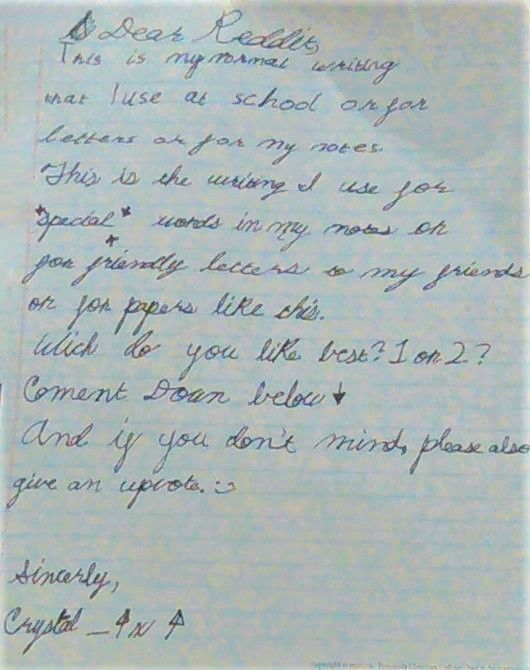 Dear Reddit,
This is my normal writing
that I use at school or for
letters or for my notes.
This is the writing I use for
*special* words in my notes or
for friendly letters to my friends
or for papers like this.
Wich do you like best? 1 or 2?
Coment Down below ↓
And if you don't mind, please also
give an upvote. :)
Sincerly,
Crystal